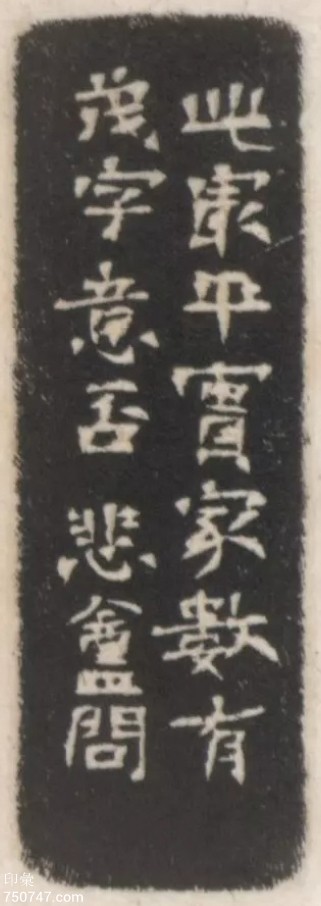 此冣平實家數有
茂字意否 悲盦問
印彙
750747.com